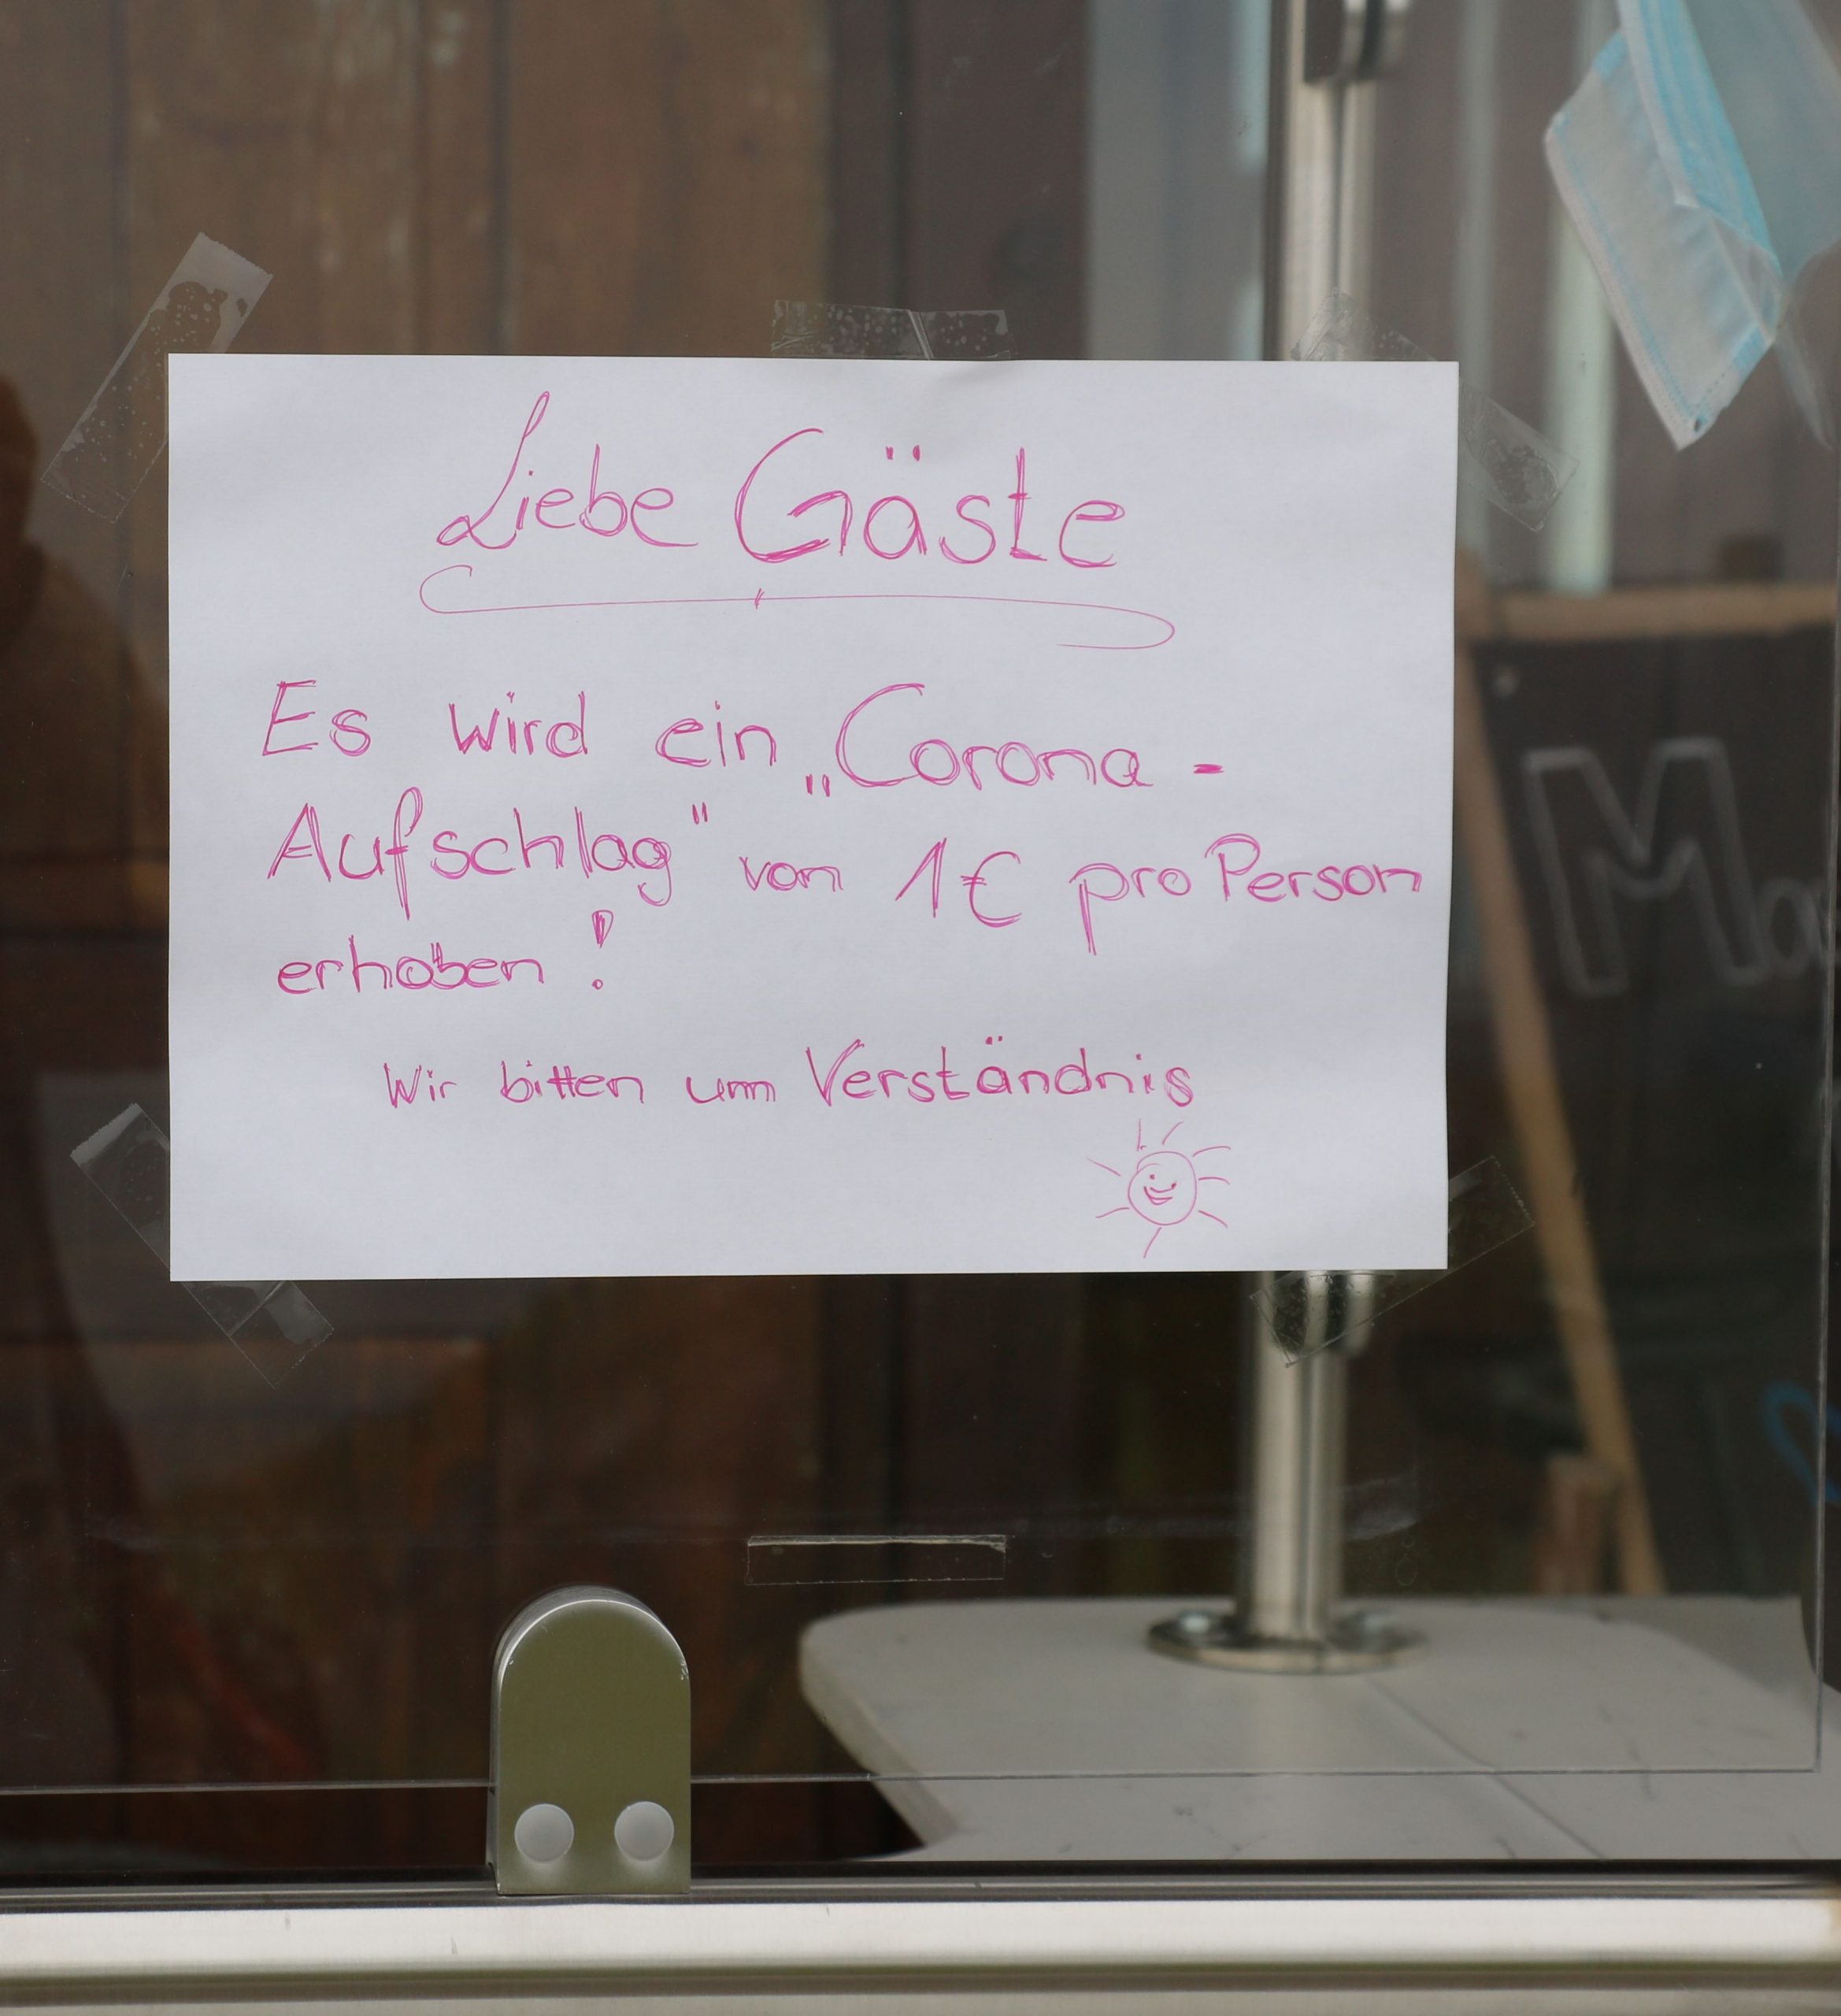 Liebe Gäste
Es wird ein „Corona-
Aufschlag" von 1€ pro Person
erhoben!
Wir bitten um Verständnis